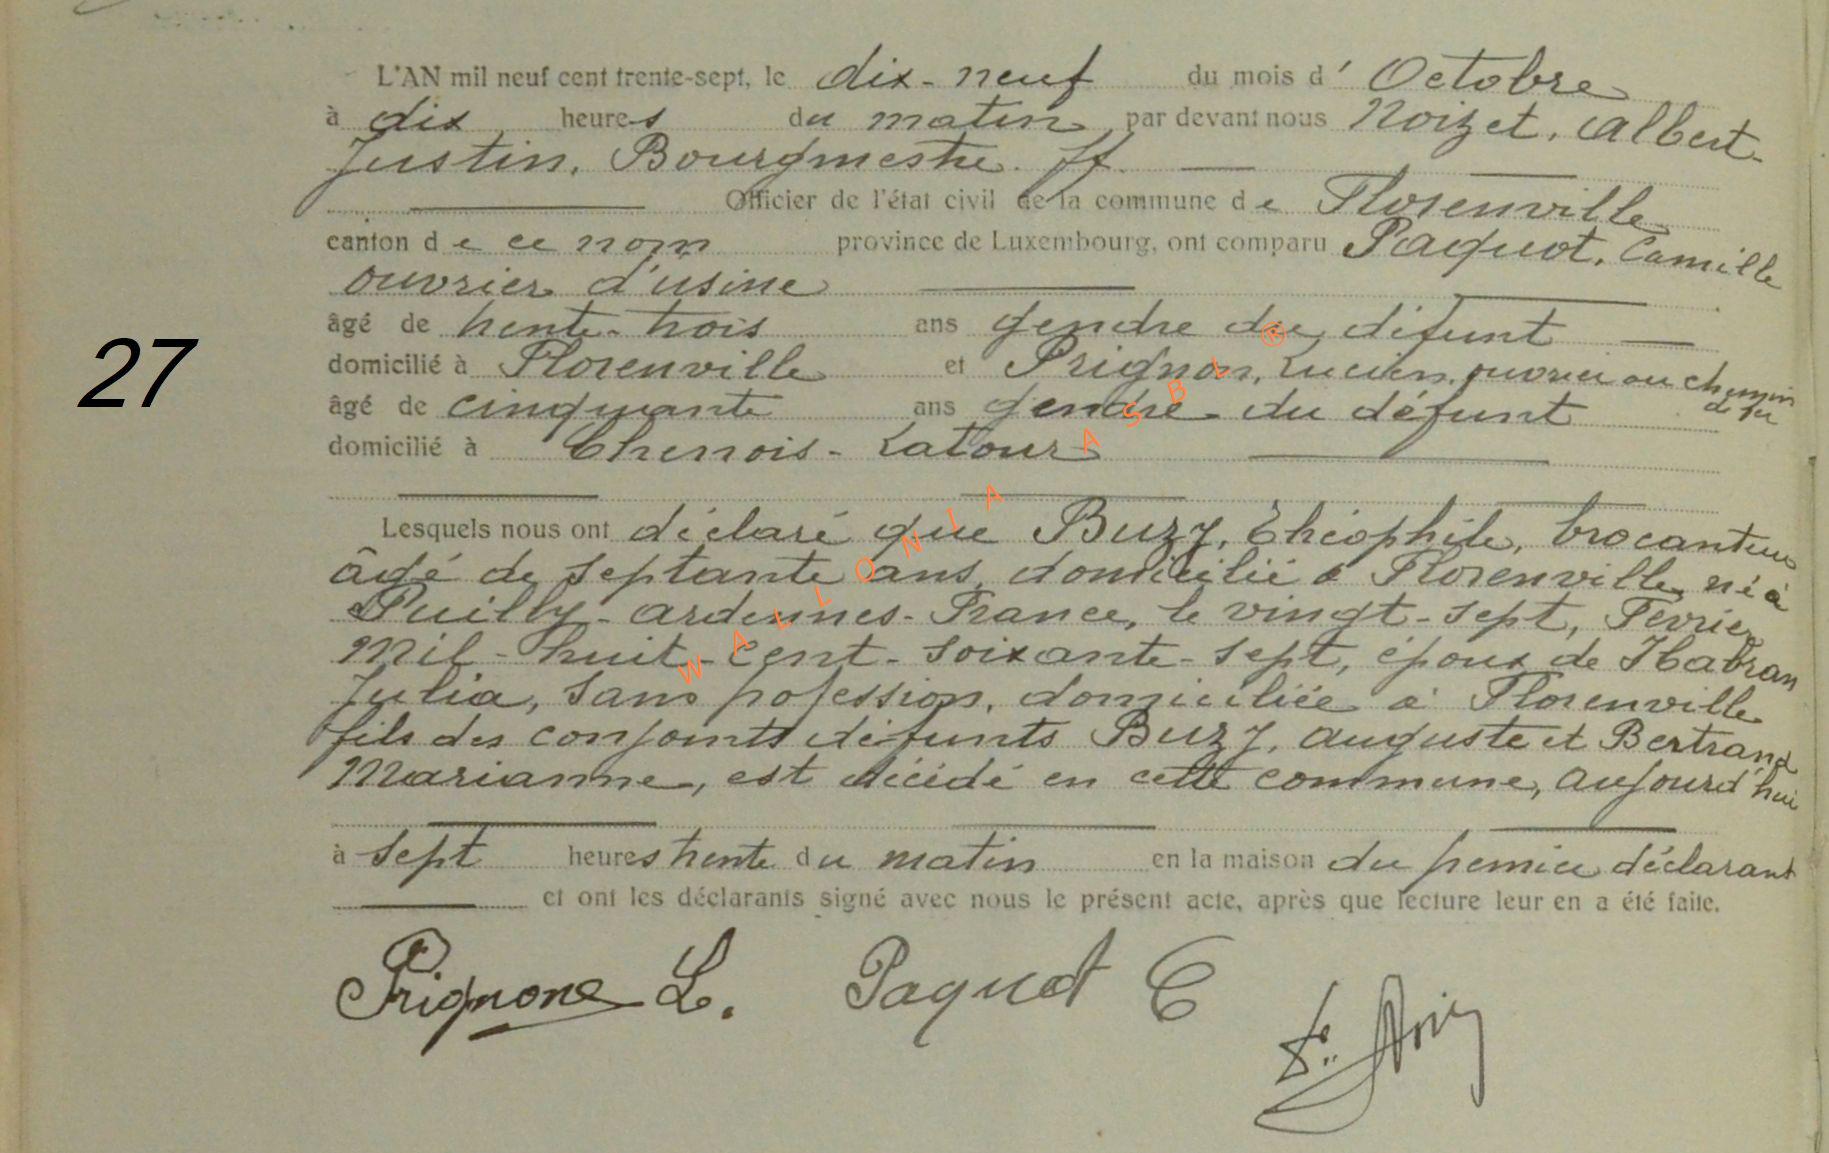 L'AN mil neuf cent trente-sept, le dix-neuf du mois d' Octobre
à dix heures du matin par devant nous Noizet, Albert-
Justin, Bourgmestre ff.
Officier de l'état civil de la commune de Florenville
canton de ce nom province de Luxembourg, ont comparu Paquot, Camille
ouvrier d'usine
âgé de trente-trois ans gendre du défunt
domicilié à Florenville et Prignon, Lucien, ouvrier au chemin
de fer
âgé de cinquante ans gendre du défunt
domicilié à Chenois-Latour
27
Lesquels nous ont déclaré que Buzy, Théophile, brocanteur
âgé de septante ans, domicilié à Florenville, né à
Puilly-Ardennes-France, le vingt-sept, Février
mil-huit-cent-soixante-sept, époux de Habran
Julia, sans pofession, domiciliée à Florenville
fils des conjoints défunts Buzy, Auguste et Bertrand
Marianne, est décédé en cette commune, aujourd'hui
à sept heures trente du matin en la maison du premier déclarant
et ont les déclarants signé avec nous le présent acte, après que lecture leur en a été faite.
Prignone L. Paquot C
WALLONIA ASBL ®